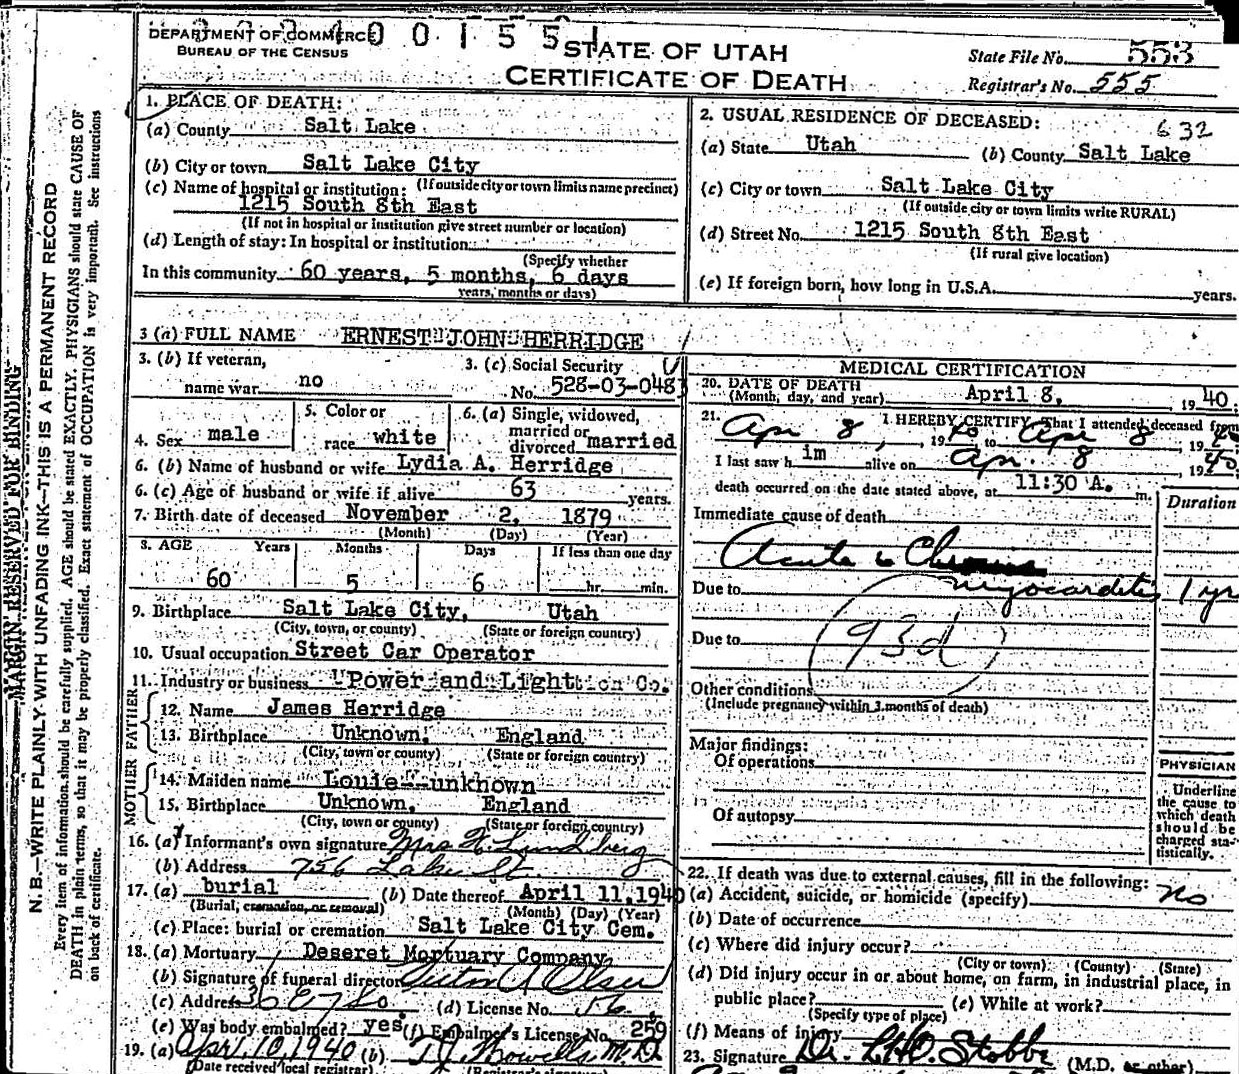 DEPARTMENT OF COMMERCE
BUREAU OF THE CENSUS
STATE OF UTAH
CERTIFICATE OF DEATH
State File No. 553
Registrar's No. 555
MARGIN RESERVED FOR BINDING
N. B.—WRITE PLAINLY WITH UNFADING INK—THIS IS A PERMANENT RECORD
Every item of information should be carefully supplied. AGE should be stated EXACTLY. PHYSICIANS should state CAUSE OF
DEATH in plain terms, so that it may be properly classified. Exact statement of OCCUPATION is very important. See instructions
on back of certificate.
1. PLACE OF DEATH:
(a) County Salt Lake
(b) City or town Salt Lake City
(If outside city or town limits name precinct)
(c) Name of hospital or institution:
1215 South 8th East
(If not in hospital or institution give street number or location)
(d) Length of stay: In hospital or institution
(Specify whether
In this community 60 years, 5 months, 6 days
years, months or days)
2. USUAL RESIDENCE OF DECEASED:
632
(a) State Utah (b) County Salt Lake
(c) City or town Salt Lake City
(If outside city or town limits write RURAL)
(d) Street No. 1215 South 8th East
(If rural give location)
(e) If foreign born, how long in U.S.A. years.
3 (a) FULL NAME ERNEST JOHN HERRIDGE
3. (b) If veteran,
name war no
3. (c) Social Security
No. 528-03-0483
4. Sex male
5. Color or
race white
6. (a) Single, widowed,
married or
divorced married
6. (b) Name of husband or wife Lydia A. Herridge
6. (c) Age of husband or wife if alive 63 years.
7. Birth date of deceased November 2, 1879
(Month) (Day) (Year)
8. AGE Years Months Days If less than one day
60 5 6 hr. min.
9. Birthplace Salt Lake City, Utah
(City, town, or county) (State or foreign country)
10. Usual occupation Street Car Operator
11. Industry or business Power and Light Co.
FATHER
12. Name James Herridge
13. Birthplace Unknown, England
(City, town or county) (State or foreign country)
MOTHER
14. Maiden name Louie--unknown
15. Birthplace Unknown, England
(City, town or county) (State or foreign country)
16. (a) Informant's own signature Mrs H Lundberg
(b) Address 756 Lake St.
17. (a) burial (b) Date thereof April 11, 1940
(Burial, cremation, or removal) (Month) (Day) (Year)
(c) Place: burial or cremation Salt Lake City Cem.
18. (a) Mortuary Deseret Mortuary Company
(b) Signature of funeral director Olsen
(c) Address 36 E 7 So (d) License No. 156
(e) Was body embalmed? yes (f) Embalmer's License No. 259
19. (a) Apr. 10, 1940 (b) T J Howells M.D.
(Date received local registrar) (Registrar's signature)
MEDICAL CERTIFICATION
20. DATE OF DEATH
(Month, day, and year) April 8, 1940.
21. I HEREBY CERTIFY, That I attended deceased from
Apr 8, 1940 to Apr 8 1940
I last saw him alive on Apr. 8 1940,
death occurred on the date stated above, at 11:30 A. m.
Duration
Immediate cause of death
Acute & Chronic
Due to myocarditis 1 yr
Due to 93d
Other conditions
(Include pregnancy within 3 months of death)
Major findings:
Of operations
Of autopsy
PHYSICIAN
Underline
the cause to
which death
should be
charged sta-
tistically.
22. If death was due to external causes, fill in the following:
(a) Accident, suicide, or homicide (specify) no
(b) Date of occurrence
(c) Where did injury occur?
(City or town) (County) (State)
(d) Did injury occur in or about home, on farm, in industrial place, in
public place? (e) While at work?
(Specify type of place)
(f) Means of injury
23. Signature Dr. L.H.O. Stobbe (M.D. or other)